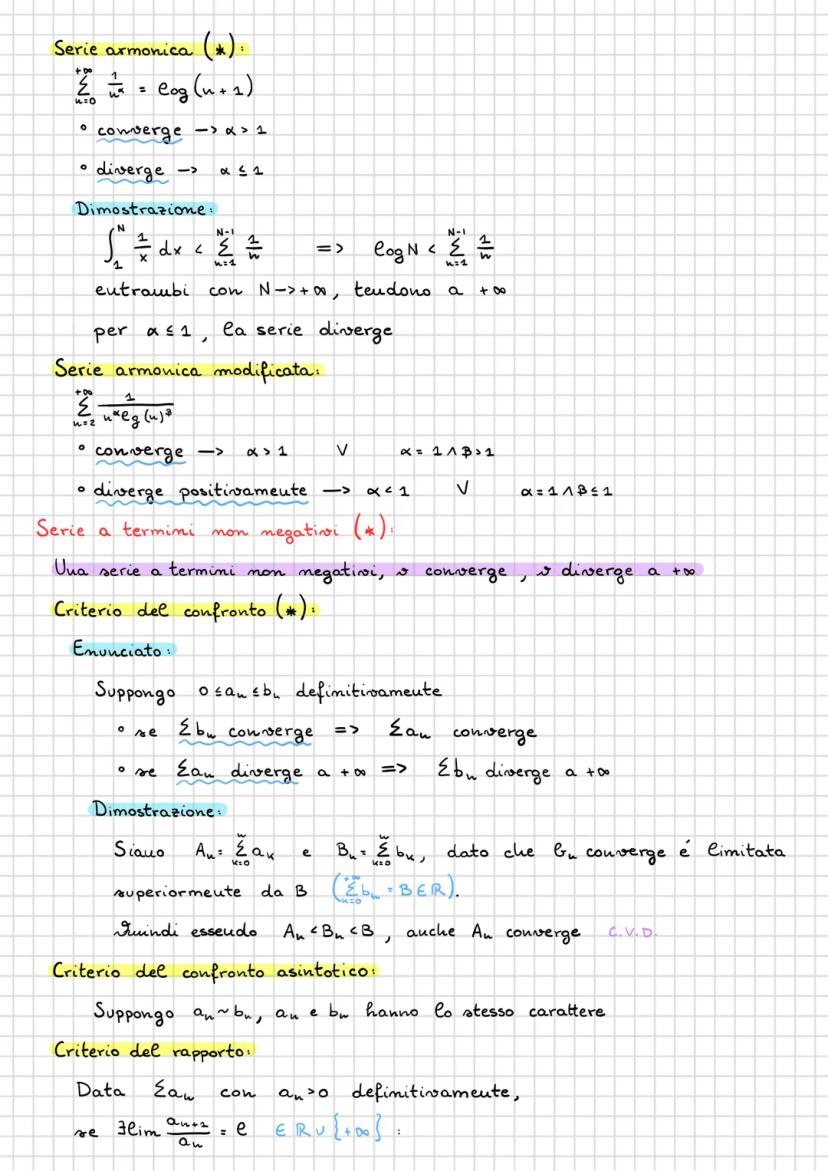 Serie armonica (*):
+∞ Σ n=0 1/n^α = log(n+1)
° converge -> α > 1
° diverge -> α ≤ 1
Dimostrazione:
∫_1^N 1/x dx < Σ_{n=1}^{N-1} 1/n => log N < Σ_{n=1}^{N-1} 1/n
entrambi con N->+∞, tendono a +∞
per α ≤ 1, la serie diverge
Serie armonica modificata:
Σ_{n=2}^{+∞} 1/(n^α lg(n)^β)
° converge -> α > 1 V α = 1 ∧ β > 1
° diverge positivamente -> α < 1 V α = 1 ∧ β ≤ 1
Serie a termini non negativi (*):
Una serie a termini non negativi, o converge, o diverge a +∞
Criterio del confronto (*):
Enunciato:
Suppongo 0 ≤ an ≤ bn definitivamente
° se Σbn converge => Σan converge
° se Σan diverge a +∞ => Σbn diverge a +∞
Dimostrazione:
Siano An = Σ_{k=0}^{n} ak e Bn = Σ_{k=0}^{n} bk, dato che bn converge é limitata
superiormente da B (Σ_{n=0}^{+∞} bn = B ∈ ℝ).
Quindi essendo An < Bn < B, anche An converge C.V.D.
Criterio del confronto asintotico:
Suppongo an ~ bn, an e bn hanno lo stesso carattere
Criterio del rapporto:
Data Σan con an > 0 definitivamente,
se ∃ lim an+1/an = l ∈ ℝ ∪ {+∞} :